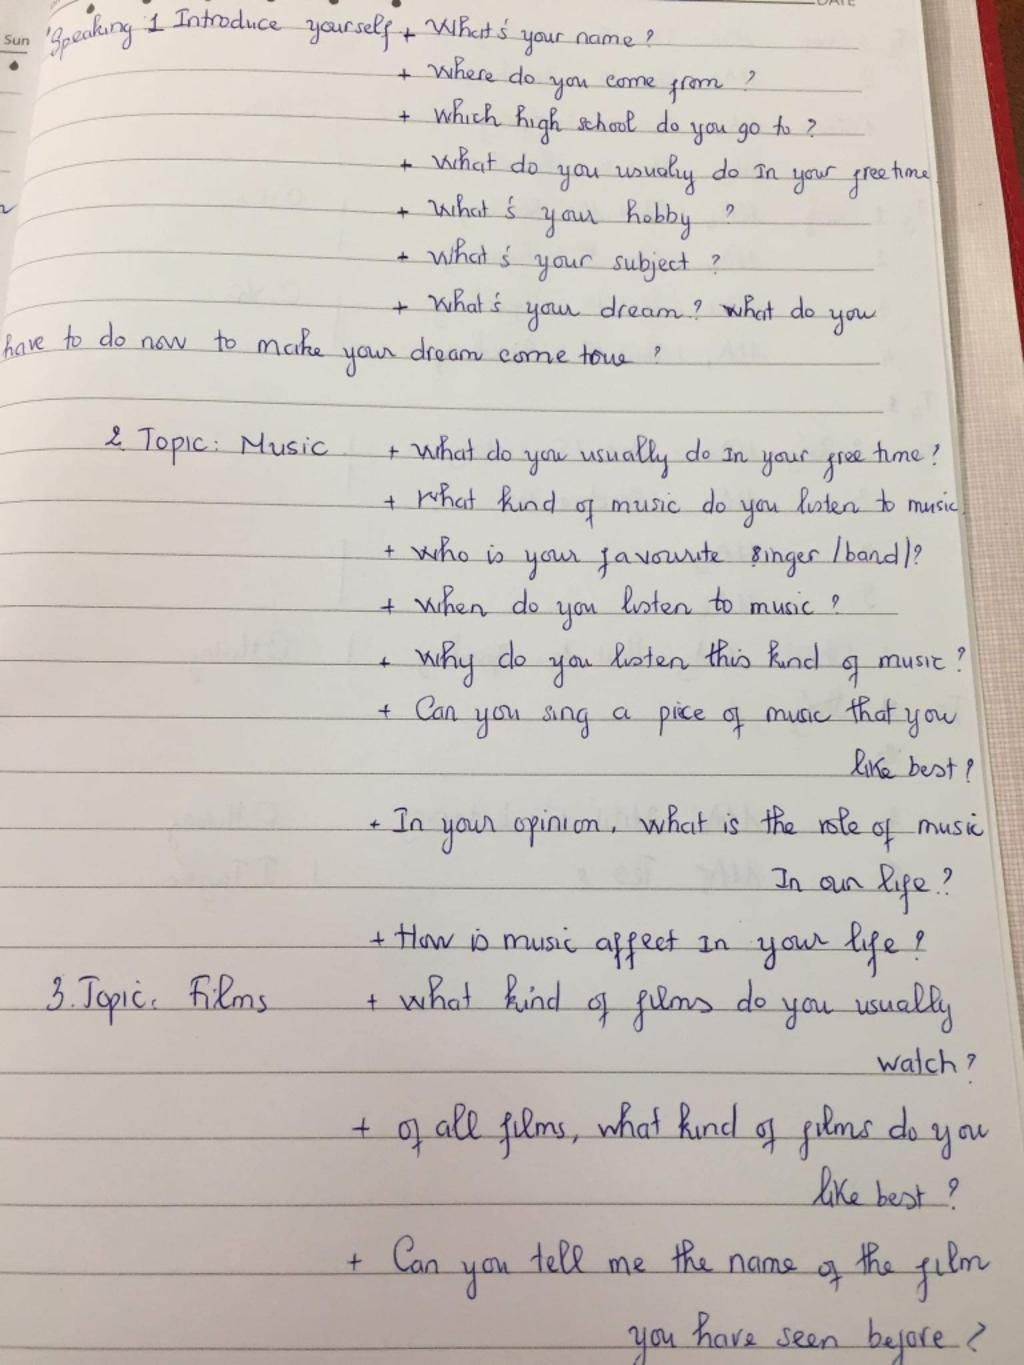 DATE
Sun
Speaking 1 Introduce yourself + What's your name?
+ Where do you come from ?
+ which high school do you go to ?
+ What do you usually do in your free time
+ What's your hobby ?
+ What's your subject ?
+ What's your dream? what do you
have to do now to make your dream come true ?
2 Topic: Music + What do you usually do in your free time?
+ What kind of music do you listen to music
+ Who is your favourite singer /band/?
+ When do you listen to music ?
+ Why do you listen this kind of music ?
+ Can you sing a piece of music that you
like best ?
+ In your opinion, what is the role of music
In our life ?
+ How is music affect in your life ?
3. Topic: Films + what kind of films do you usually
watch ?
+ of all films, what kind of films do you
like best ?
+ Can you tell me the name of the film
you have seen before ?